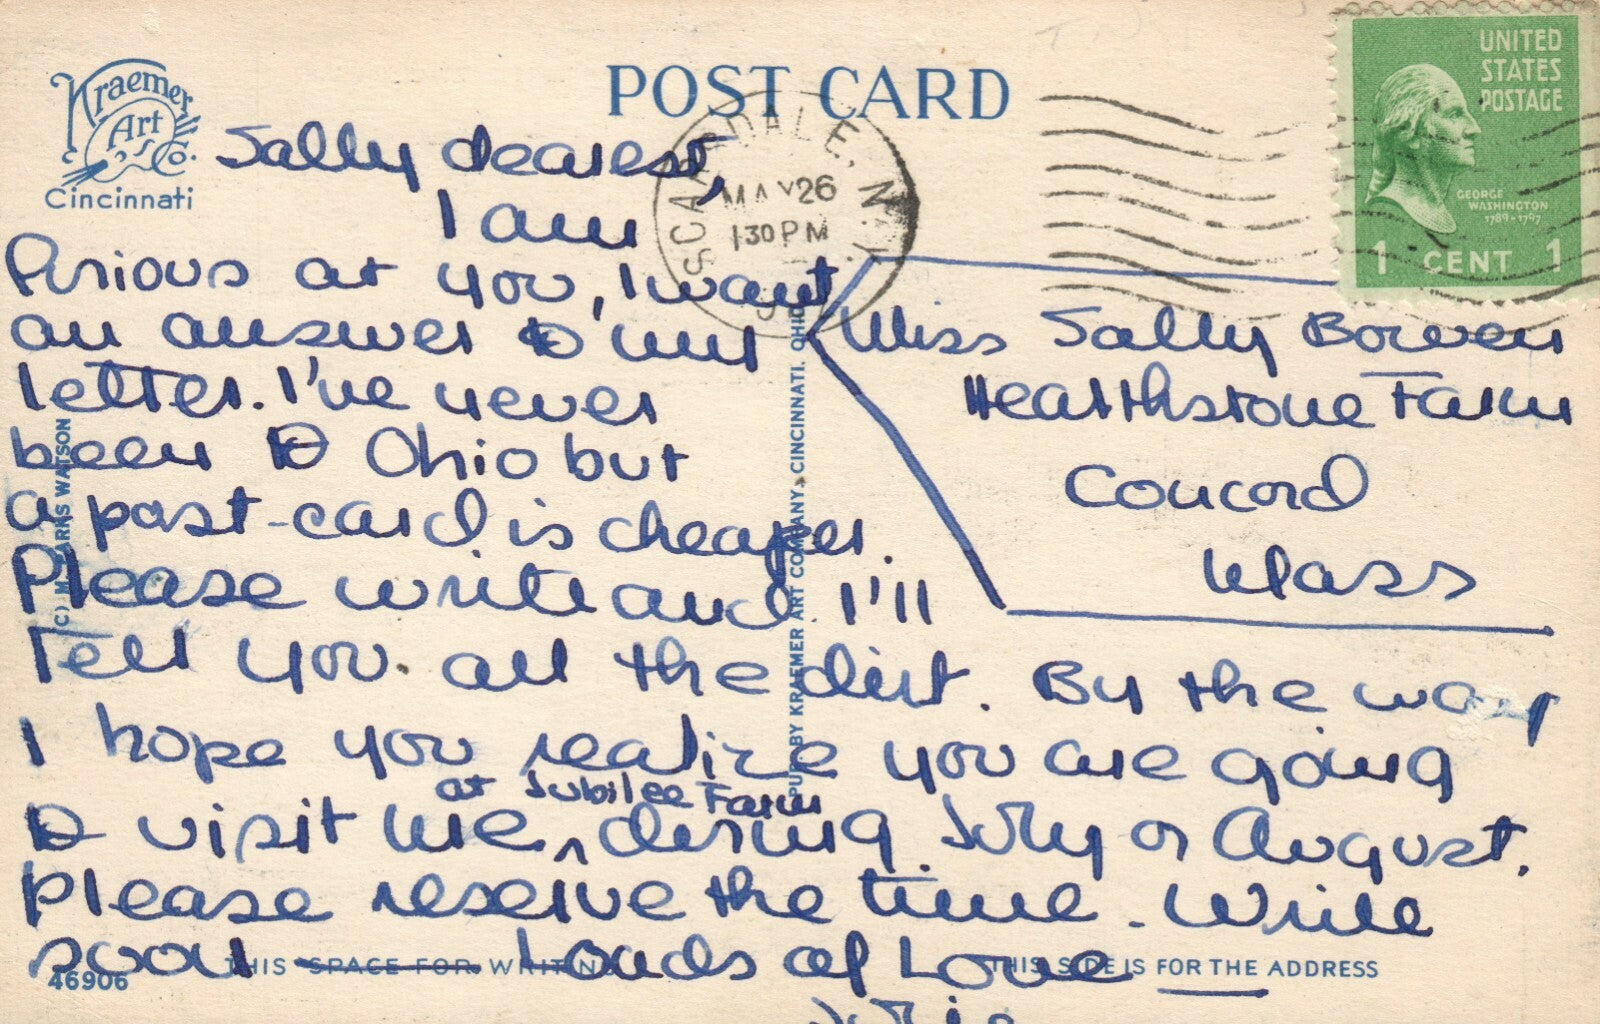 Kraemer
Art
Co.
Cincinnati
POST CARD
SCARSDALE, N.Y.
MAY 26
130 PM
UNITED
STATES
POSTAGE
GEORGE
WASHINGTON
1789-1797
1 CENT 1
Sally dearest,
I am
furious at you, I want
an answer to my
letter. I've never
been to Ohio but
a post-card is cheaper.
Please write and I'll
Tell you all the dirt. By the way
I hope you realize you are going
at Jubilee Farm
to visit me ^ during July or August.
Please reserve the time. Write
soon Loads of Love
Miss Sally Bowen
Hearthstone Farm
Concord
Mass
PUB. BY KRAEMER ART COMPANY, CINCINNATI, OHIO
WATSON
46906
THIS SPACE FOR WRITING
THIS SIDE IS FOR THE ADDRESS